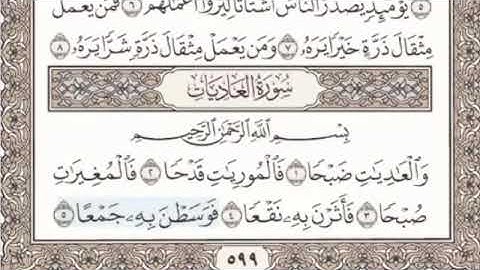 يَوۡمَئِذٖ يَصۡدُرُ ٱلنَّاسُ أَشۡتَاتٗا لِّيُرَوۡاْ أَعۡمَٰلَهُمۡ ٦ فَمَن يَعۡمَلۡ
مِثۡقَالَ ذَرَّةٍ خَيۡرٗا يَرَهُۥ ٧ وَمَن يَعۡمَلۡ مِثۡقَالَ ذَرَّةٖ شَرّٗا يَرَهُۥ ٨
سُورَةُ العَادِيَاتِ
بِسۡمِ ٱللَّهِ ٱلرَّحۡمَٰنِ ٱلرَّحِيمِ
وَٱلۡعَٰدِيَٰتِ ضَبۡحٗا ١ فَٱلۡمُورِيَٰتِ قَدۡحٗا ٢ فَٱلۡمُغِيرَٰتِ
صُبۡحٗا ٣ فَأَثَرۡنَ بِهِۦ نَقۡعٗا ٤ فَوَسَطۡنَ بِهِۦ جَمۡعًا ٥
٥٩٩